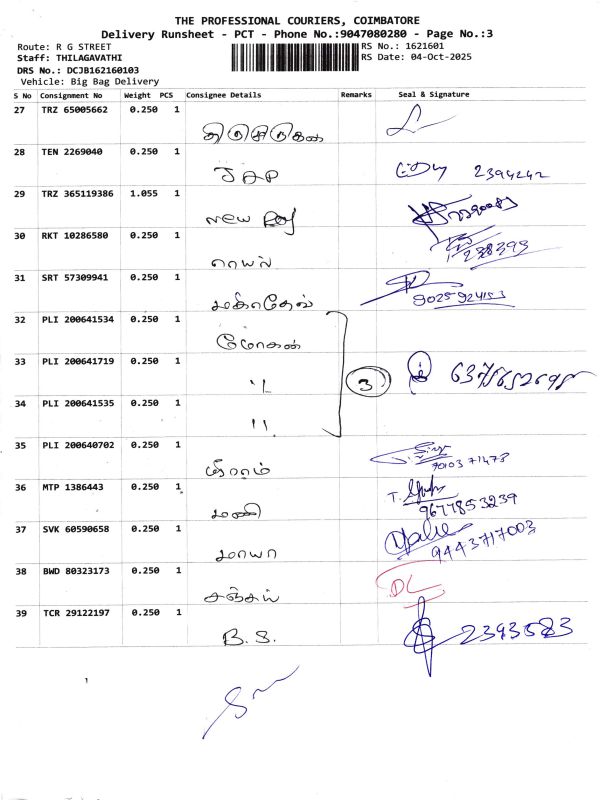 THE PROFESSIONAL COURIERS, COIMBATORE
Delivery Runsheet - PCT - Phone No.:9047080280 - Page No.:3
Route: R G STREET
RS No.: 1621601
Staff: THILAGAVATHI
RS Date: 04-Oct-2025
DRS No.: DCJB162160103
Vehicle: Big Bag Delivery
S No Consignment No Weight PCS Consignee Details Remarks Seal & Signature
27 TRZ 65005662 0.250 1
28 TEN 2269040 0.250 1
JAP 2394242
29 TRZ 365119386 1.055 1
New
30 RKT 10286580 0.250 1
ராயல்
31 SRT 57309941 0.250 1
மகாதேவ் 9025924153
32 PLI 200641534 0.250 1
மோகன்
33 PLI 200641719 0.250 1
" 3
34 PLI 200641535 0.250 1
"
35 PLI 200640702 0.250 1
ஸ்ரீராம்
36 MTP 1386443 0.250 1
மணி 9677853239
37 SVK 60590658 0.250 1
மாயா 9443717003
38 BWD 80323173 0.250 1
சஞ்சய் DL
39 TCR 29122197 0.250 1
B.S. 2393583